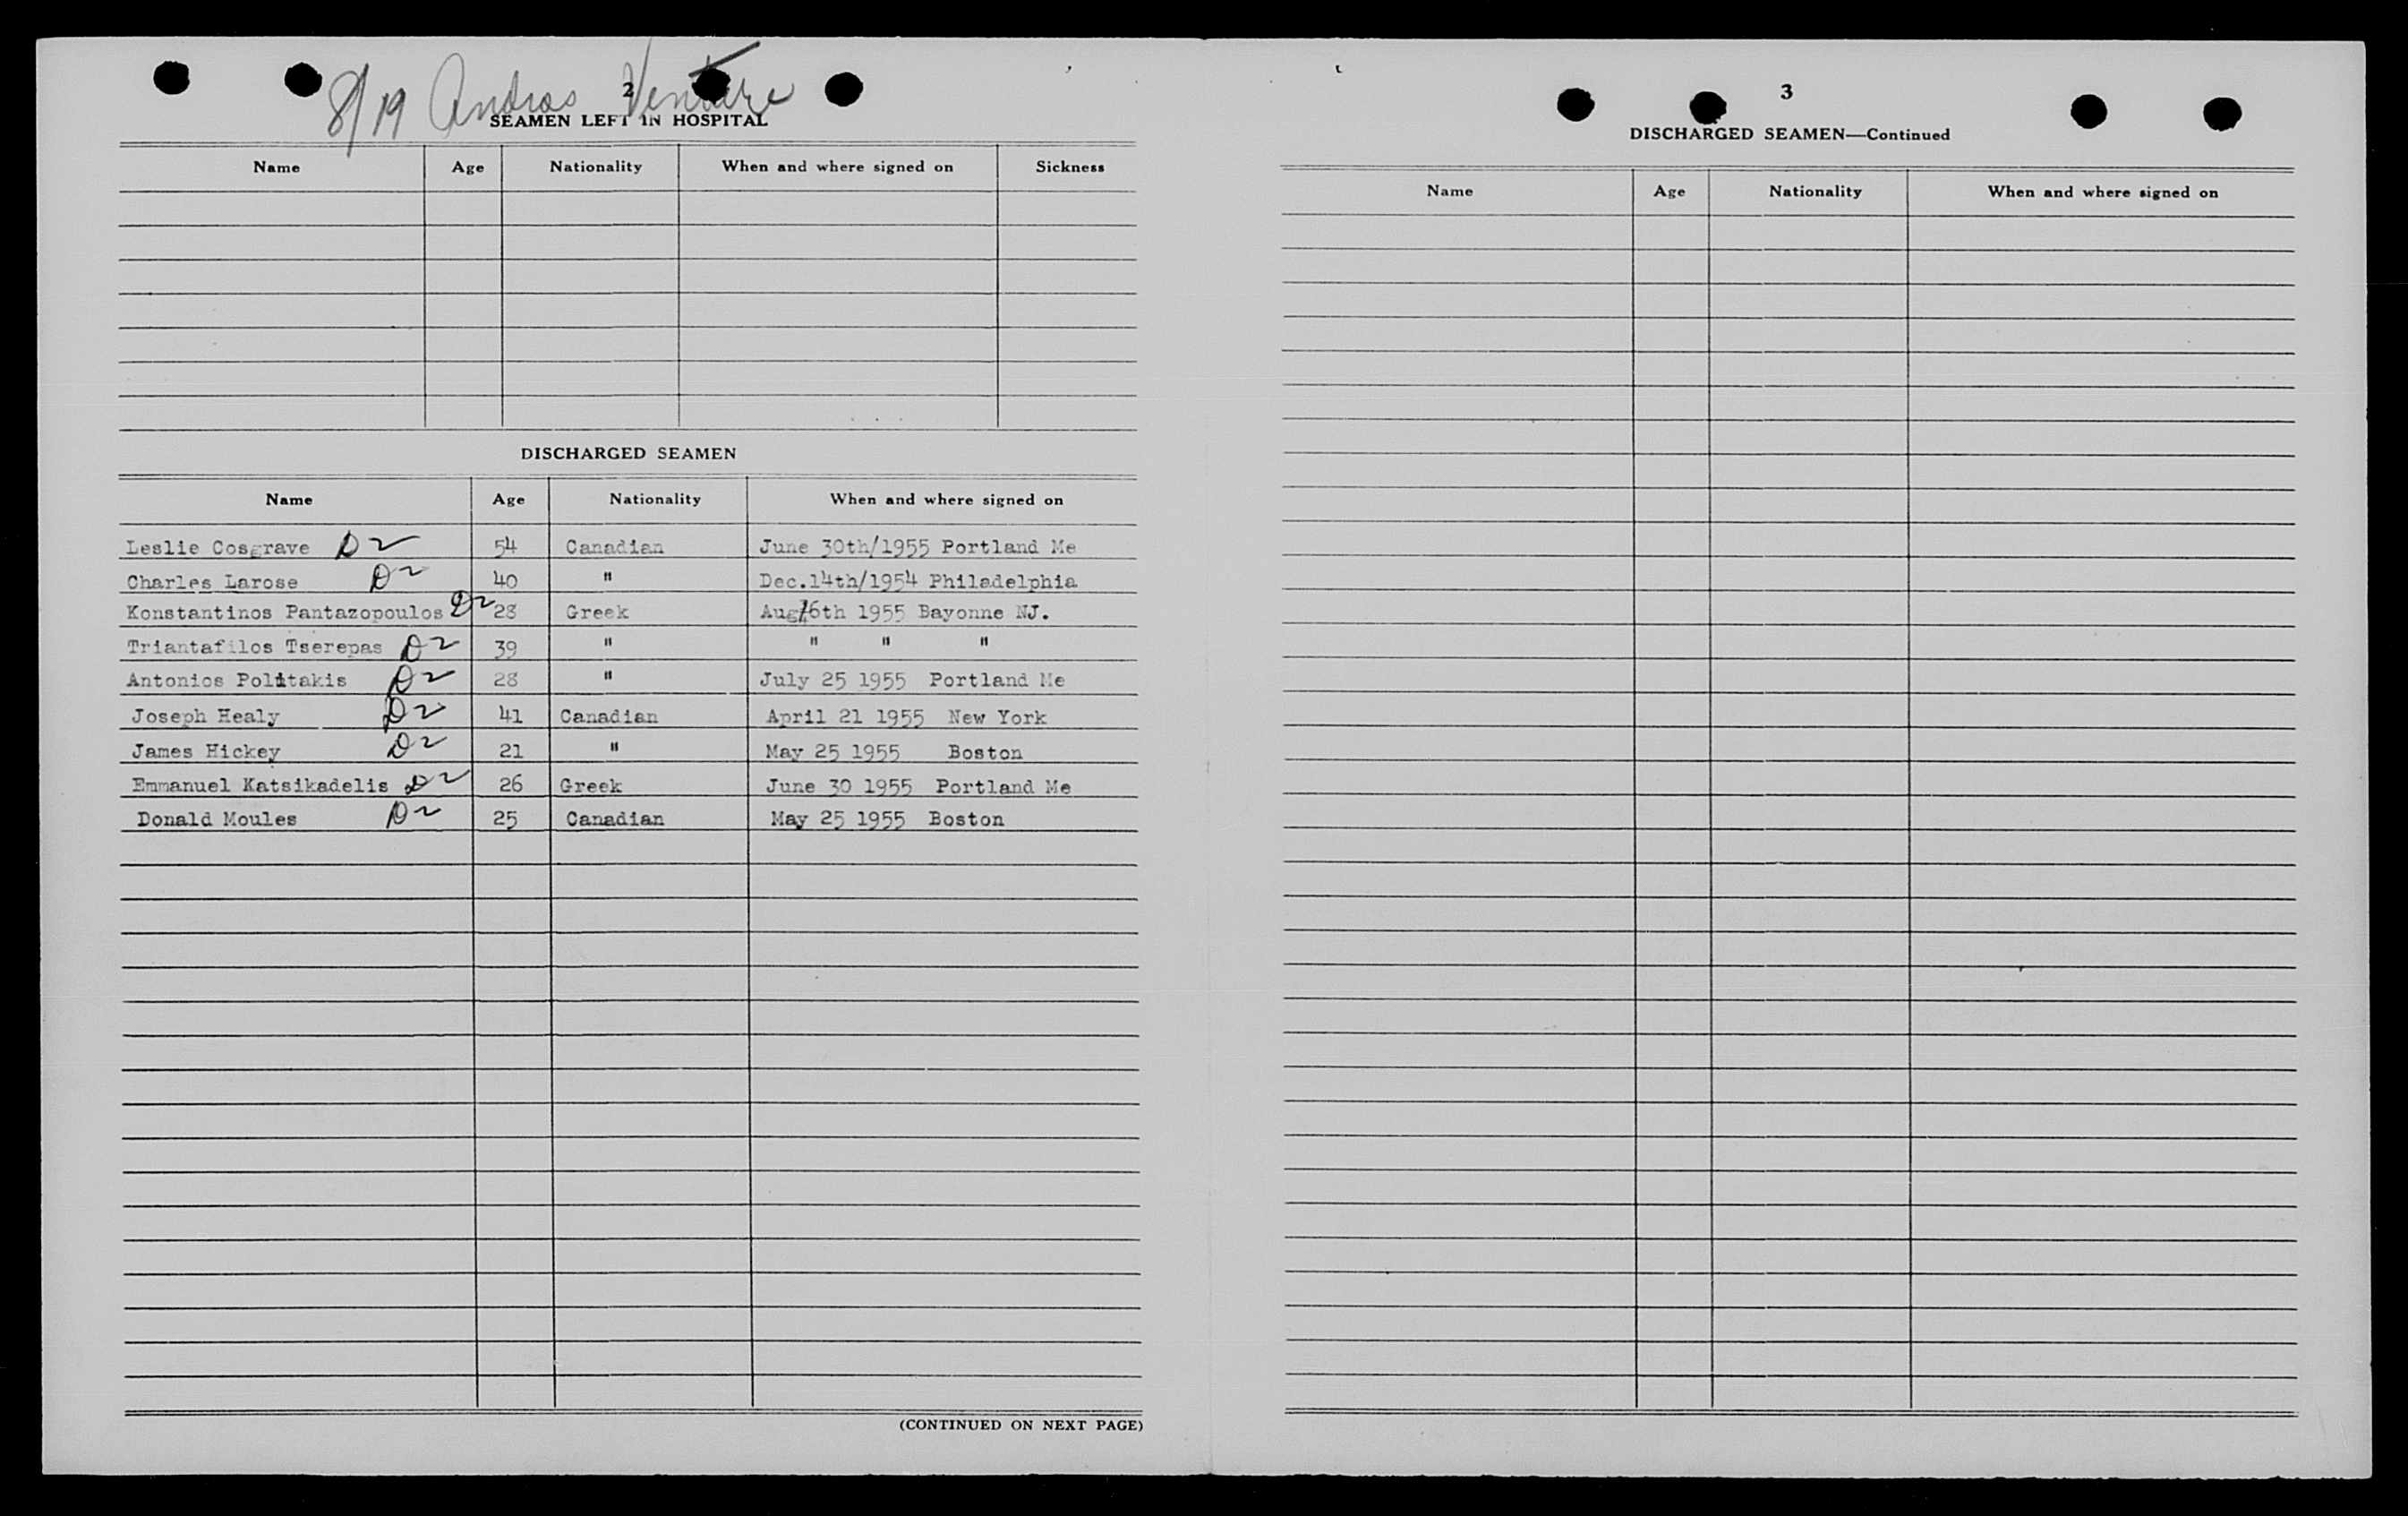 8/19 Andros Venture
2
SEAMEN LEFT IN HOSPITAL
Name Age Nationality When and where signed on Sickness
DISCHARGED SEAMEN
Name Age Nationality When and where signed on
Leslie Cosgrave D2 54 Canadian June 30th/1955 Portland Me
Charles Larose D2 40 " Dec.14th/1954 Philadelphia
Konstantinos Pantazopoulos D2 28 Greek Aug 16th 1955 Bayonne NJ.
Triantafilos Tserepas D2 39 " " " "
Antonios Politakis D2 28 " July 25 1955 Portland Me
Joseph Healy D2 41 Canadian April 21 1955 New York
James Hickey D2 21 " May 25 1955 Boston
Emmanuel Katsikadelis D2 26 Greek June 30 1955 Portland Me
Donald Moules D2 25 Canadian May 25 1955 Boston
(CONTINUED ON NEXT PAGE)
3
DISCHARGED SEAMEN—Continued
Name Age Nationality When and where signed on